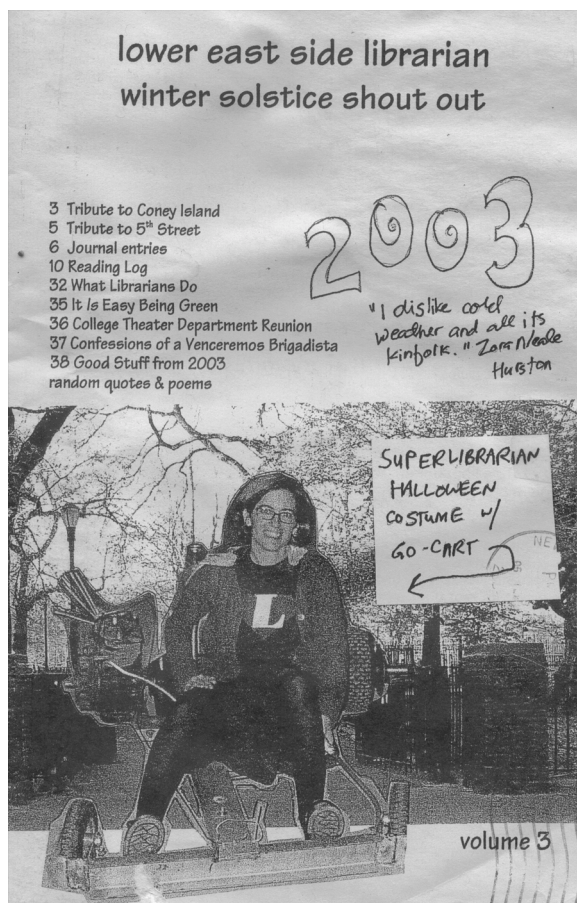 lower east side librarian
winter solstice shout out
3 Tribute to Coney Island
5 Tribute to 5th Street
6 Journal entries
10 Reading Log
32 What Librarians Do
35 It Is Easy Being Green
36 College Theater Department Reunion
37 Confessions of a Venceremos Brigadista
38 Good Stuff from 2003
random quotes & poems
2003
"I dislike cold
weather and all its
kinfolk." Zora Neale
Hurston
SUPERLIBRARIAN
HALLOWEEN
COSTUME W/
GO-CART
NE
L
volume 3